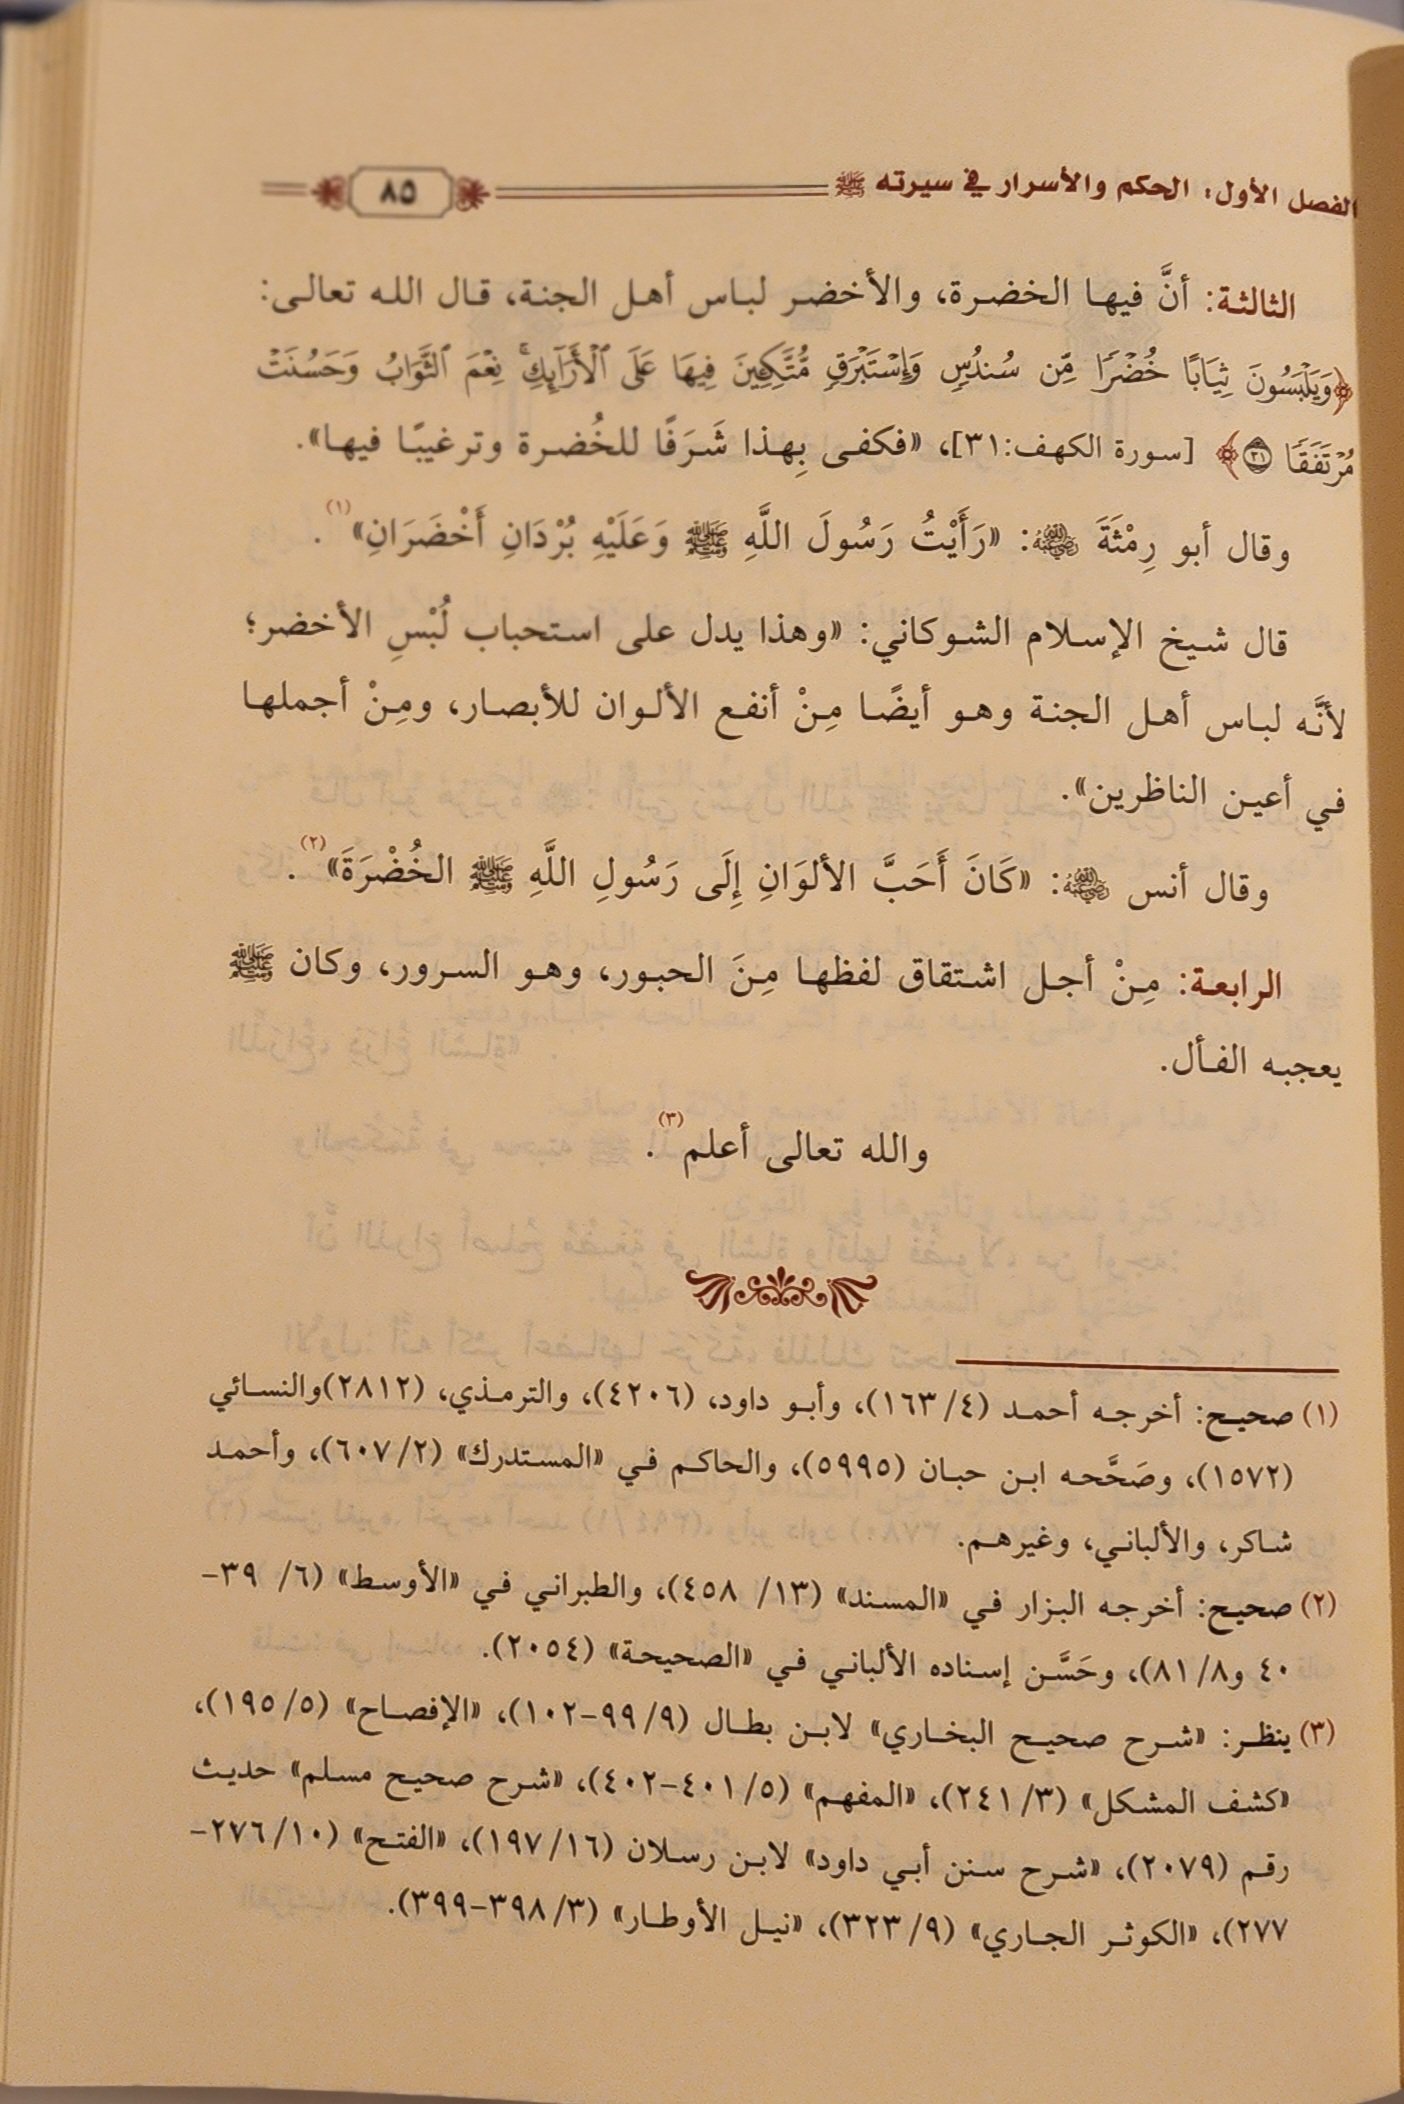 الفصل الأول: الحكم والأسرار في سيرته ﷺ
٨٥
الثالثة: أنَّ فيها الخضرة، والأخضر لباس أهل الجنة، قال الله تعالى:
﴿وَيَلۡبَسُونَ ثِيَابًا خُضۡرٗا مِّن سُندُسٖ وَإِسۡتَبۡرَقٖ مُّتَّكِـِٔينَ فِيهَا عَلَى ٱلۡأَرَآئِكِۚ نِعۡمَ ٱلثَّوَابُ وَحَسُنَتۡ
مُرۡتَفَقٗا ٣١﴾ [سورة الكهف:٣١]، «فكفى بِهذا شَرَفًا للخُضرة وترغيبًا فيها».
وقال أبو رِمْثَةَ رضي الله عنه: «رَأَيْتُ رَسُولَ اللَّهِ ﷺ وَعَلَيْهِ بُرْدَانِ أَخْضَرَانِ»(١).
قال شيخ الإسلام الشوكاني: «وهذا يدل على استحباب لُبْسِ الأخضر؛
لأنَّه لباس أهل الجنة وهو أيضًا مِنْ أنفع الألوان للأبصار، ومِنْ أجملها
في أعين الناظرين».
وقال أنس رضي الله عنه: «كَانَ أَحَبَّ الألوَانِ إِلَى رَسُولِ اللَّهِ ﷺ الخُضْرَةَ»(٢).
الرابعة: مِنْ أجل اشتقاق لفظها مِنَ الحبور، وهو السرور، وكان ﷺ
يعجبه الفأل.
والله تعالى أعلم(٣).
(١) صحيح: أخرجه أحمد (٤/١٦٣)، وأبو داود، (٤٢٠٦)، والترمذي، (٢٨١٢)والنسائي
(١٥٧٢)، وصَحَّحه ابن حبان (٥٩٩٥)، والحاكم في «المستدرك» (٢/٦٠٧)، وأحمد
شاكر، والألباني، وغيرهم.
(٢) صحيح: أخرجه البزار في «المسند» (١٣/ ٤٥٨)، والطبراني في «الأوسط» (٦/ ٣٩-
٤٠ و٨/٨١)، وحَسَّن إسناده الألباني في «الصحيحة» (٢٠٥٤).
(٣) ينظر: «شرح صحيح البخاري» لابن بطال (٩/٩٩-١٠٢)، «الإفصاح» (٥/١٩٥)،
«كشف المشكل» (٣/٢٤١)، «المفهم» (٥/٤٠١-٤٠٢)، «شرح صحيح مسلم» حديث
رقم (٢٠٧٩)، «شرح سنن أبي داود» لابن رسلان (١٦/١٩٧)، «الفتح» (١٠/٢٧٦-
٢٧٧)، «الكوثر الجاري» (٩/٣٢٣)، «نيل الأوطار» (٣/٣٩٨-٣٩٩).